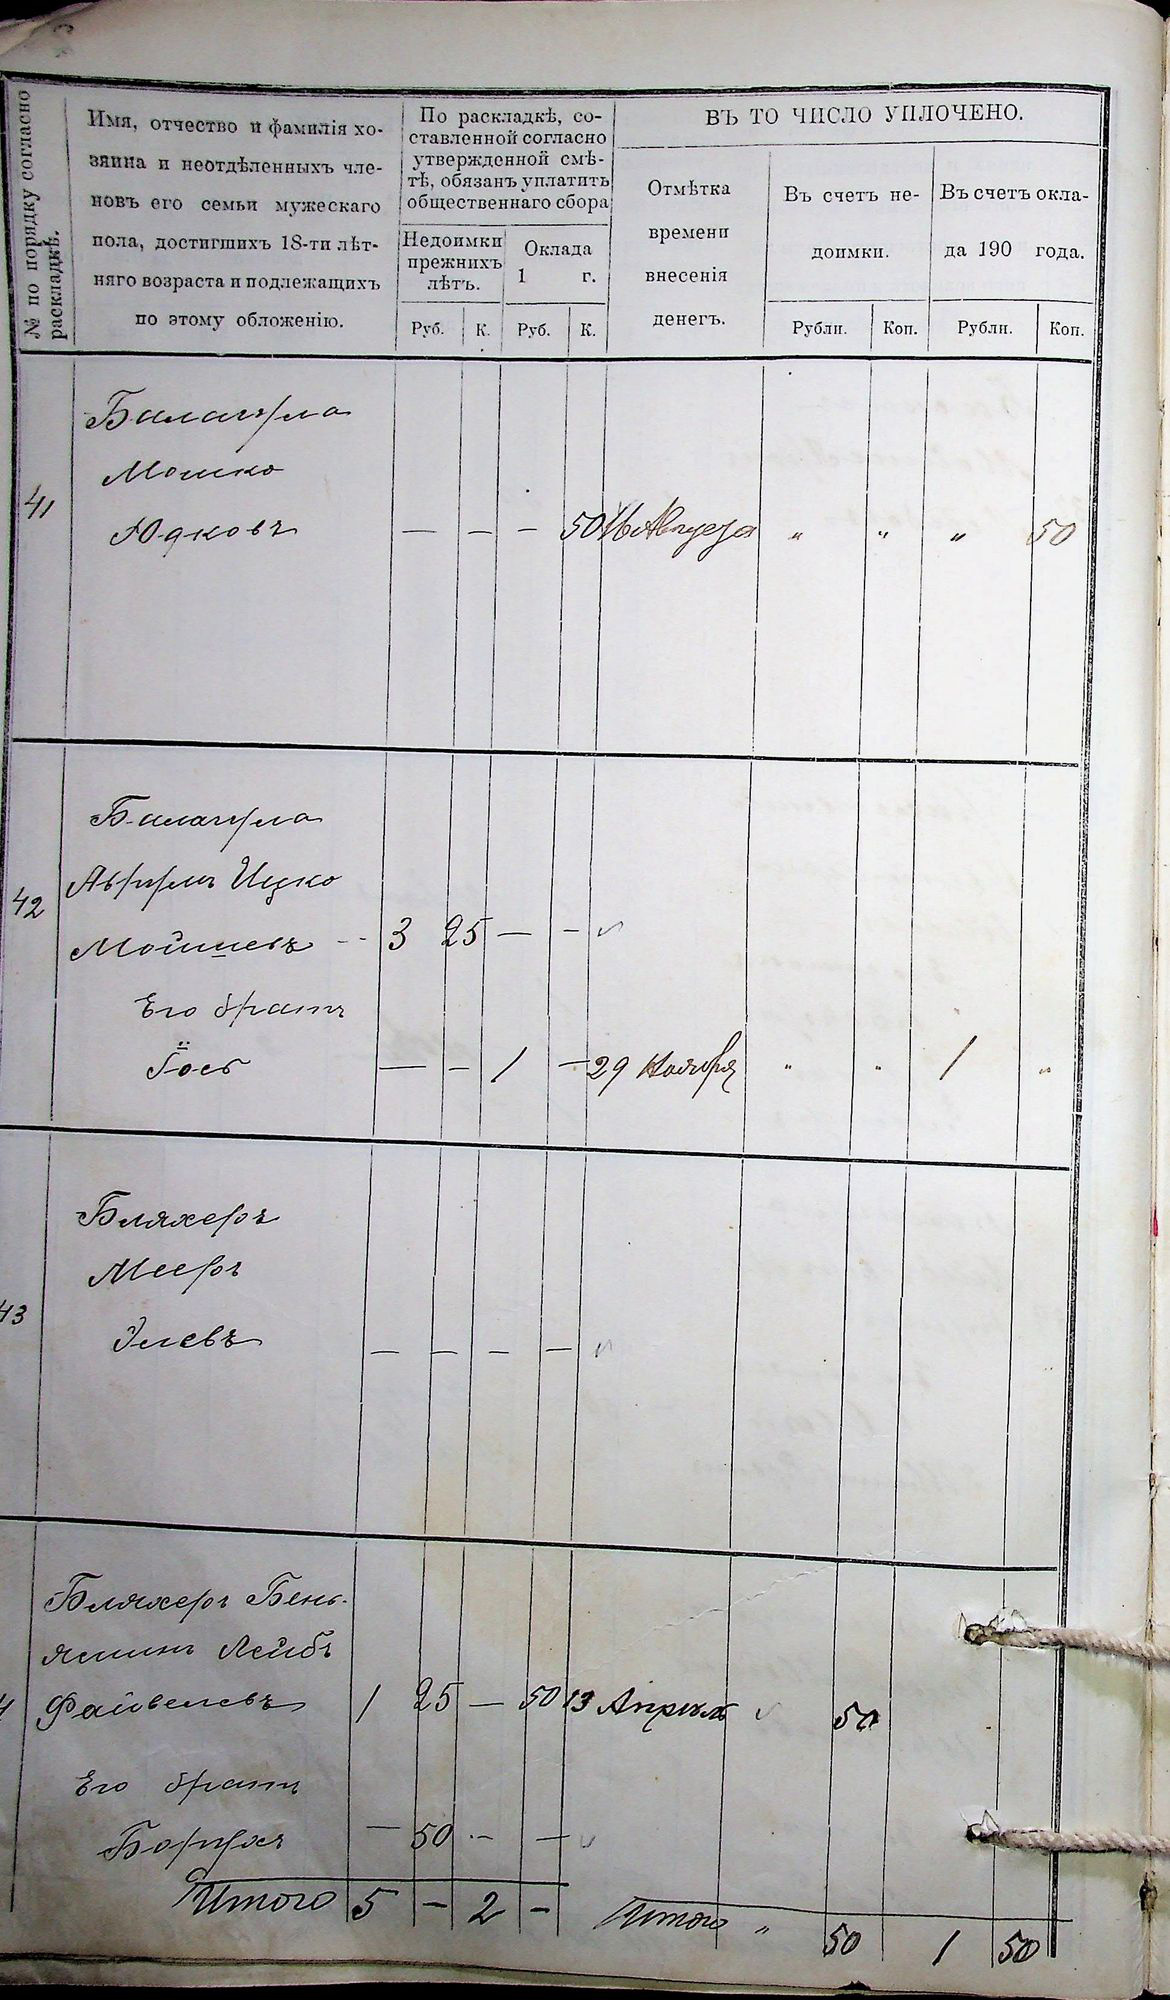 № по порядку согласно
раскладкѣ.
Имя, отчество и фамилія хо-
зяина и неотдѣленныхъ чле-
новъ его семьи мужескаго
пола, достигшихъ 18-ти лѣт-
няго возраста и подлежащихъ
по этому обложенію.
По раскладкѣ, со-
ставленной согласно
утвержденной смѣ-
тѣ, обязанъ уплатить
общественнаго сбора
Недоимки
прежнихъ
лѣтъ.
Оклада
1 г.
Руб. К. Руб. К.
ВЪ ТО ЧИСЛО УПЛОЧЕНО.
Отмѣтка
времени
внесенія
денегъ.
Въ счетъ не-
доимки.
Въ счетъ окла-
да 190 года.
Рубли. Коп. Рубли. Коп.
Балагула
Мошко
41 Юдковъ — — — 50 16 Августа " " " 50
Балагула
Аврумъ Ицко
42 Мойшевъ -- 3 25 — —
Его братъ
Іось — — 1 — 29 Ноября " " 1 "
Бляхеръ
Мееръ
43 Элевъ — — — —
Бляхеръ Бень-
яминъ Лейбъ
Файвелевъ 1 25 — 50 13 Апрѣля 50
Его братъ
Борухъ — 50 — —
Итого 5 — 2 — Итого " 50 1 50